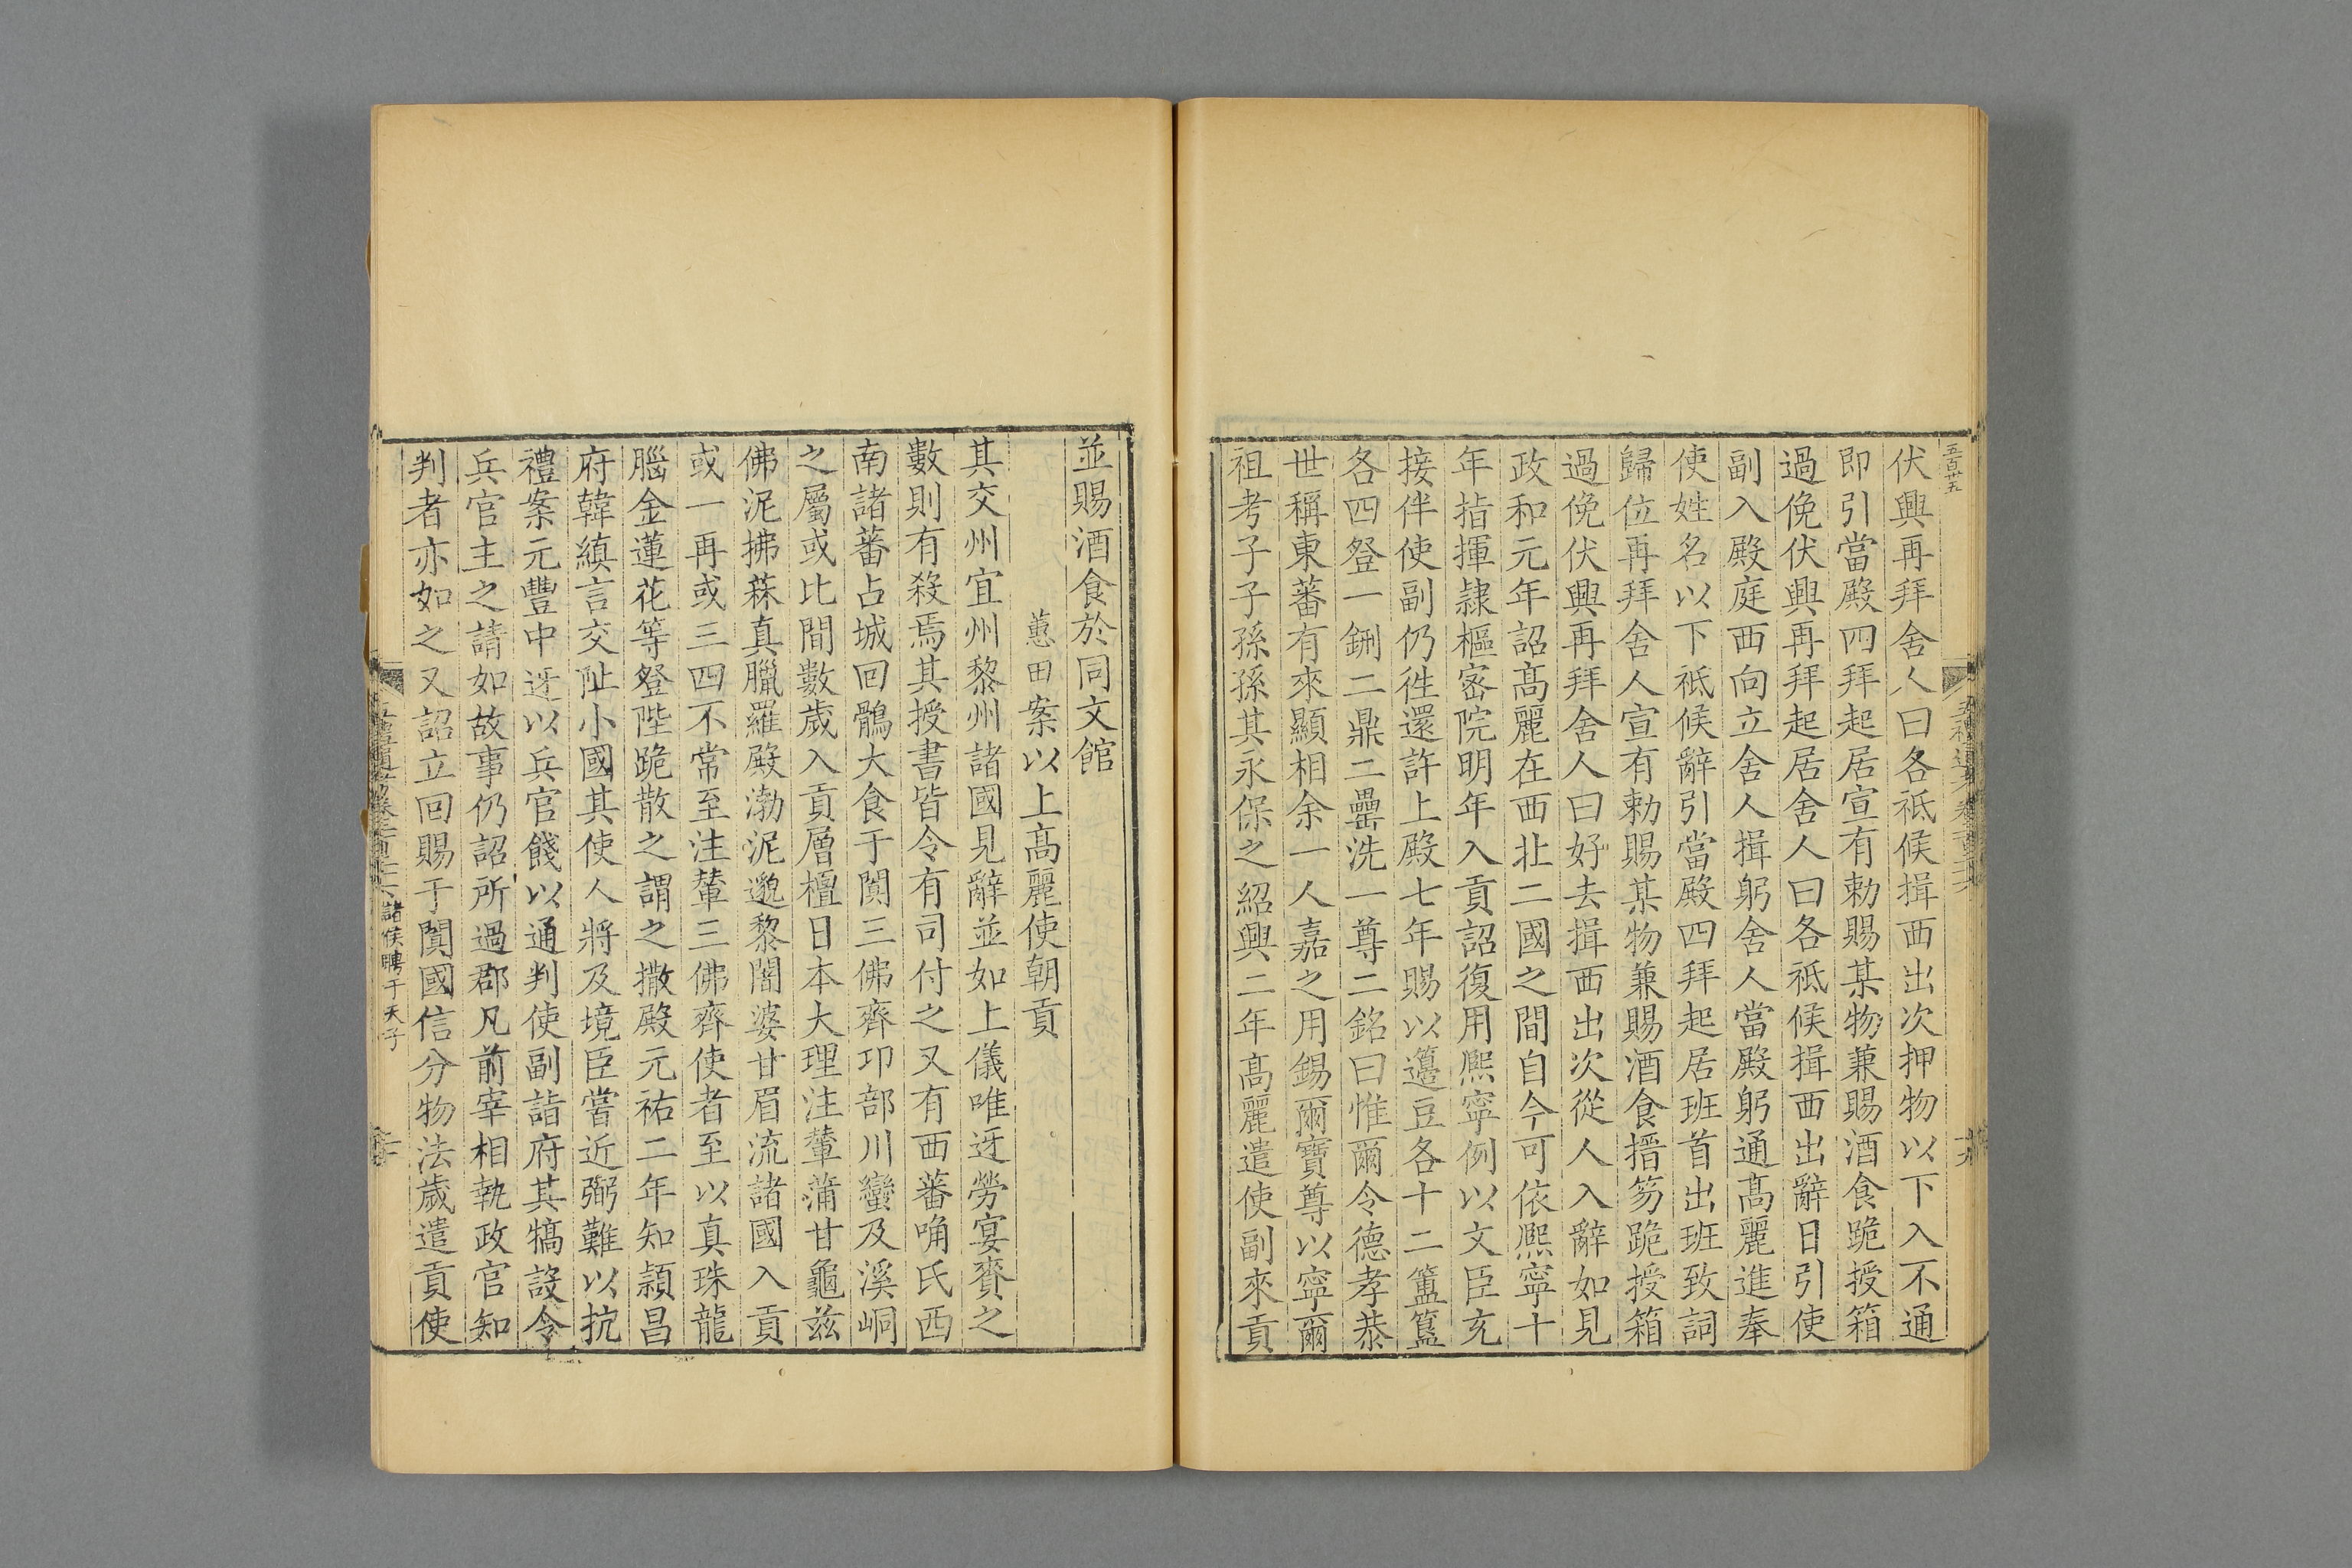 五百廿五
伏興再拜舍人曰各祗候揖西出次押物以下入不通
即引當殿四拜起居宣有勅賜某物兼賜酒食跪授箱
過俛伏興再拜起居舍人曰各祗候揖西出辭日引使
副入殿庭西向立舍人揖躬舍人當殿躬通髙麗進奉
使姓名以下祗候辭引當殿四拜起居班首出班致詞
歸位再拜舍人宣有勅賜某物兼賜酒食搢笏跪授箱
過俛伏興再拜舍人曰好去揖西出次從人入辭如見
政和元年詔髙麗在西北二國之間自今可依熈寧十
年指揮隷樞宻院明年入貢詔復用熈寧例以文臣充
接伴使副仍徃還許上殿七年賜以籩豆各十二簠簋
各四登一鉶二鼎二罍洗一尊二銘曰惟爾令德孝恭
世稱東蕃有來顯相余一人嘉之用錫爾寶尊以寧爾
祖考子子孫孫其永保之紹興二年髙麗遣使副來貢
並賜酒食於同文館
蕙田案以上髙麗使朝貢
其交州宜州黎州諸國見辭並如上儀唯迓勞宴賚之
數則有殺焉其授書皆令有司付之又有西蕃唃氏西
南諸蕃占城回鶻大食于闐三佛齊卭部川蠻及溪峒
之屬或比間數歲入貢層檀日本大理注輦蒲甘龜兹
佛泥拂菻真臘羅殿渤泥邈黎闍婆甘眉流諸國入貢
或一再或三四不常至注輦三佛齊使者至以真珠龍
腦金蓮花等登陛跪散之謂之撒殿元祐二年知潁昌
府韓縝言交阯小國其使人將及境臣嘗近弼難以抗
禮案元豐中迓以兵官餞以通判使副詣府其犒設令
兵官主之請如故事仍詔所過郡凡前宰相執政官知
判者亦如之又詔立回賜于闐國信分物法歲遣貢使
諸侯聘于天子